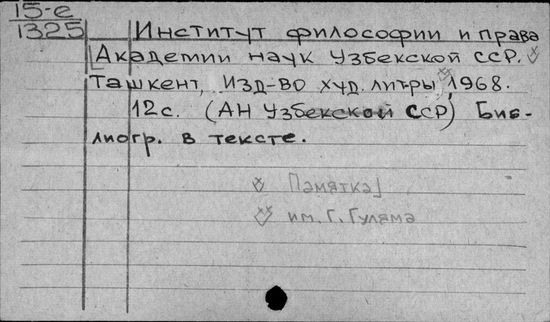 15-е
1325
Институт философии и права
Академии наук Узбекской ССР.
Ташкент, Изд-во худ. литры, 1968.
12с. (АН Узбекской ССР) Биб-
лиогр. в тексте.
Памятка]
им. Г. Гуляма